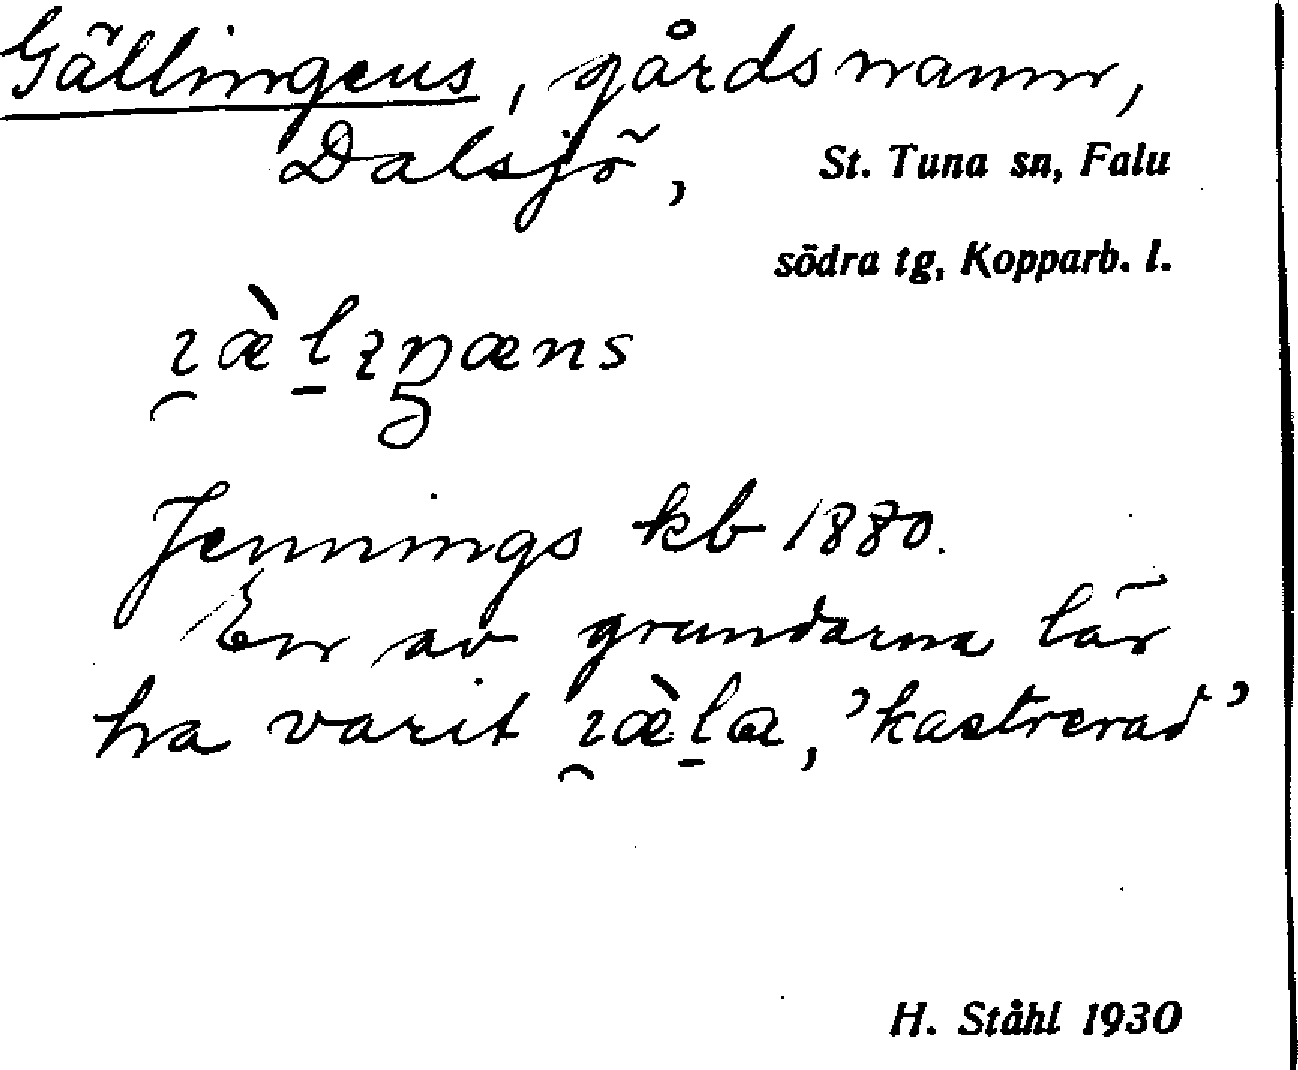 Gällingens, gårdsnamn,
Dalsjö, St. Tuna sn, Falu
södra tg, Kopparb. l.
Jennings kb 1880.
En av grundarna lär
ha varit , 'kastrerad'
H. Ståhl 1930